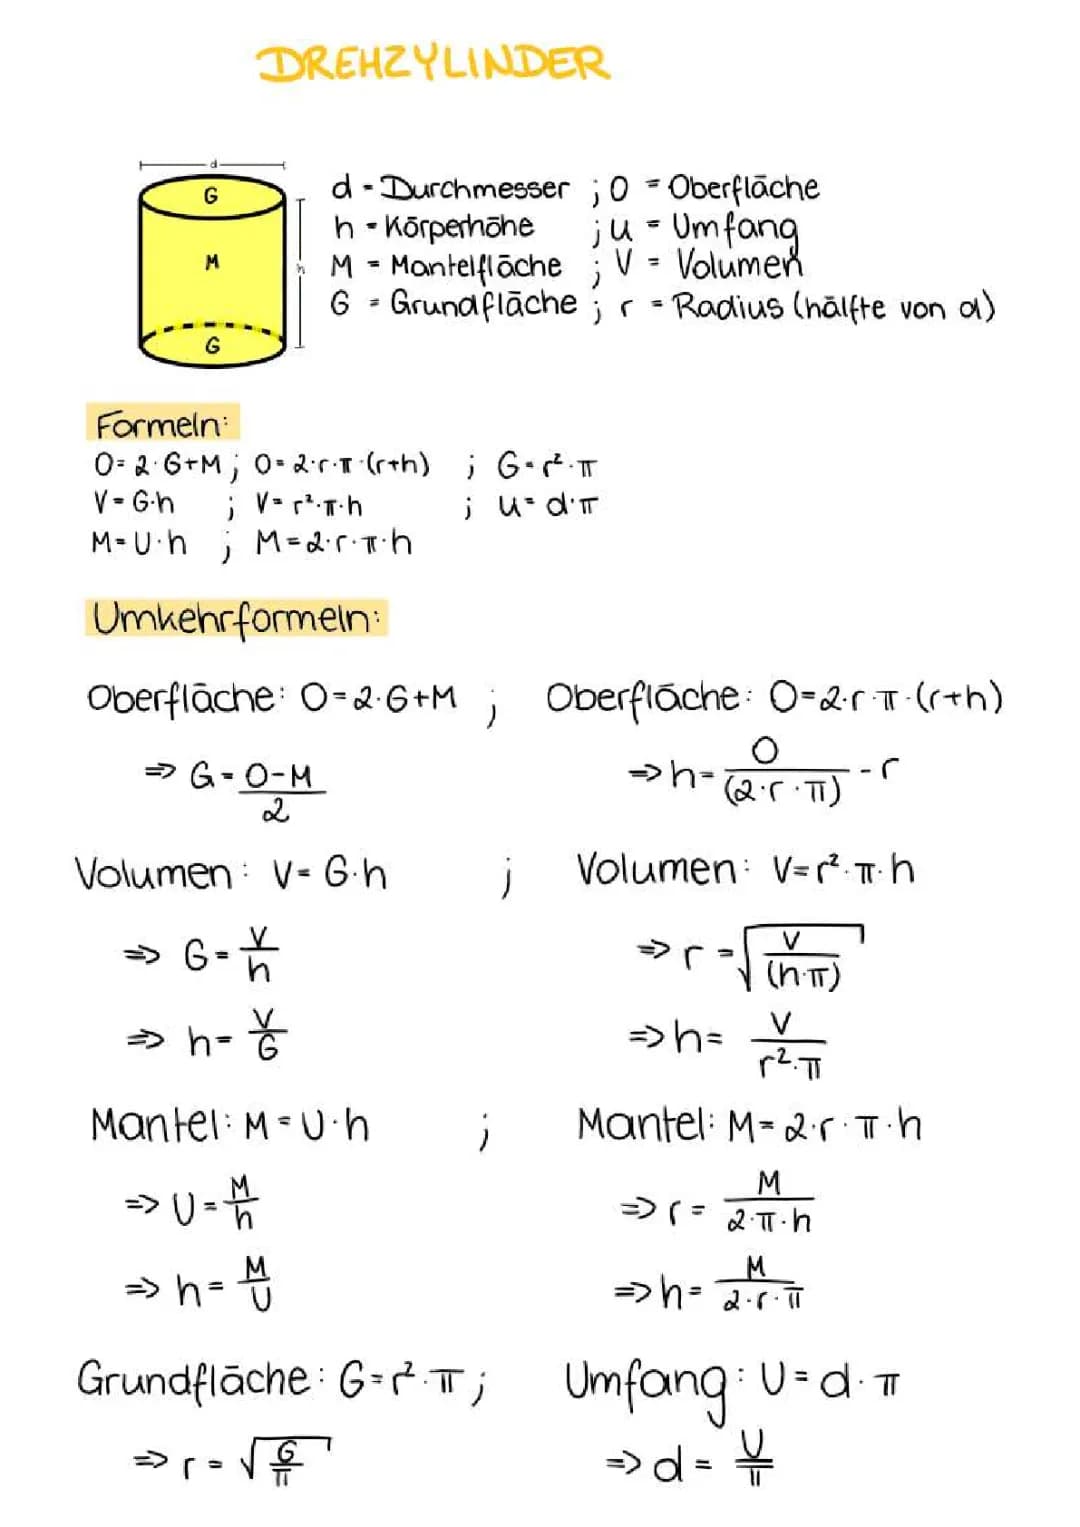 DREHZYLINDER
d
G
M
h
G
d - Durchmesser ; O = Oberfläche
h - Körperhöhe ; u = Umfang
M = Mantelfläche ; V = Volumen
G = Grundfläche ; r = Radius (hälfte von d)
Formeln:
O = 2·G+M ; O = 2·r·π·(r+h) ; G = r²·π
V = G·h ; V = r²·π·h ; u = d·π
M = U·h ; M = 2·r·π·h
Umkehrformeln:
Oberfläche: O = 2·G+M ; Oberfläche: O = 2·r·π·(r+h)
=> G = (O-M)/2 => h = O/(2·r·π) - r
Volumen: V = G·h ; Volumen: V = r²·π·h
=> G = V/h => r = √(V/(h·π))
=> h = V/G => h = V/(r²·π)
Mantel: M = U·h ; Mantel: M = 2·r·π·h
=> U = M/h => r = M/(2·π·h)
=> h = M/U => h = M/(2·r·π)
Grundfläche: G = r²·π ; Umfang: U = d·π
=> r = √(G/π) => d = U/π